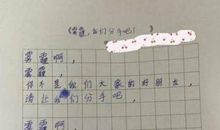 《雾霾，我们分手吧！》
雾霾啊，
雾霾，
你不是我们大家的好朋友，
请让我们分手吧，
雾霾啊，